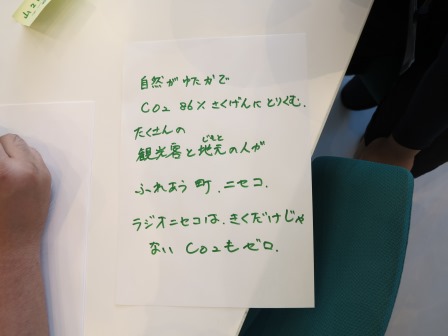 自然がゆたかで
CO₂ 86% さくげんにとりくむ.
たくさんの
じもと
観光客と地元の人が
ふれあう町.ニセコ.
ラジオニセコは.きくだけじゃ
ない CO₂もゼロ.